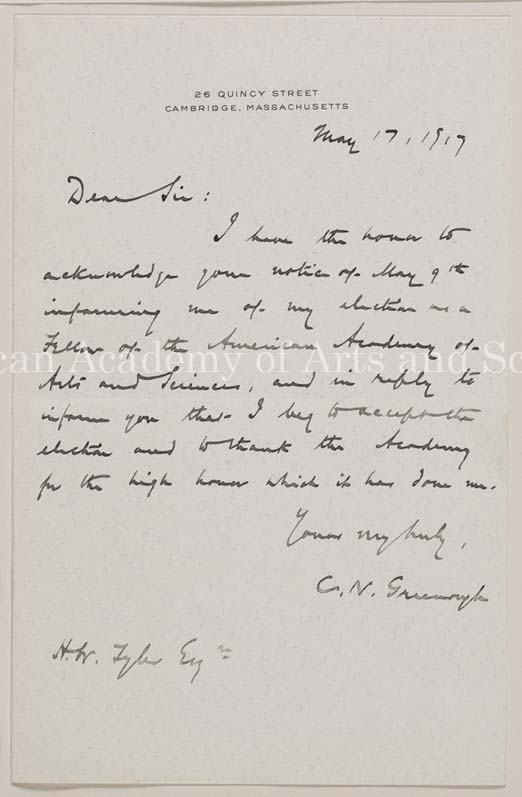 26 QUINCY STREET
CAMBRIDGE, MASSACHUSETTS
May 17, 1917
Dear Sir:
I have the honor to
acknowledge your notice of May 9th
informing me of my election as a
Fellow of the American Academy of
can Academy of Arts and Sc
Arts and Sciences, and in reply to
inform you that I beg to accept the
election and to thank the Academy
for the high honor which it has done me.
Yours very truly,
C. N. Greenough
H. W. Tyler Esqre